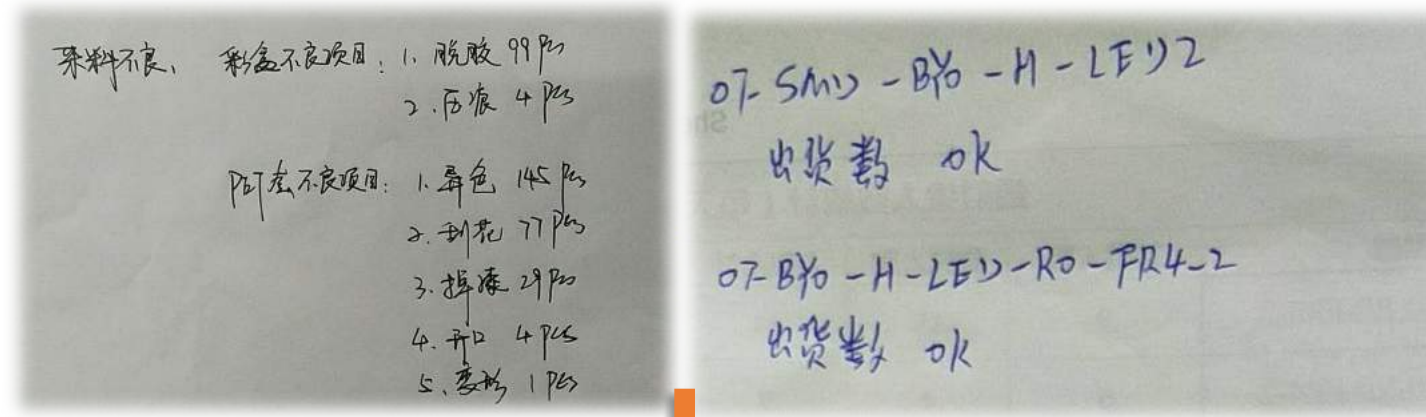 来料不良、 彩盒不良项目：1. 脱胶 99 Pcs
2. 压痕 4 Pcs
PET套不良项目：1. 异色 145 Pcs
2. 刮花 77 Pcs
3. 掉漆 29 Pcs
4. 开口 4 Pcs
5. 变形 1 Pcs
07-SMD-BY0-H-LED2
出货数 ok
07-BY0-H-LED-R0-FR4-2
出货数 ok